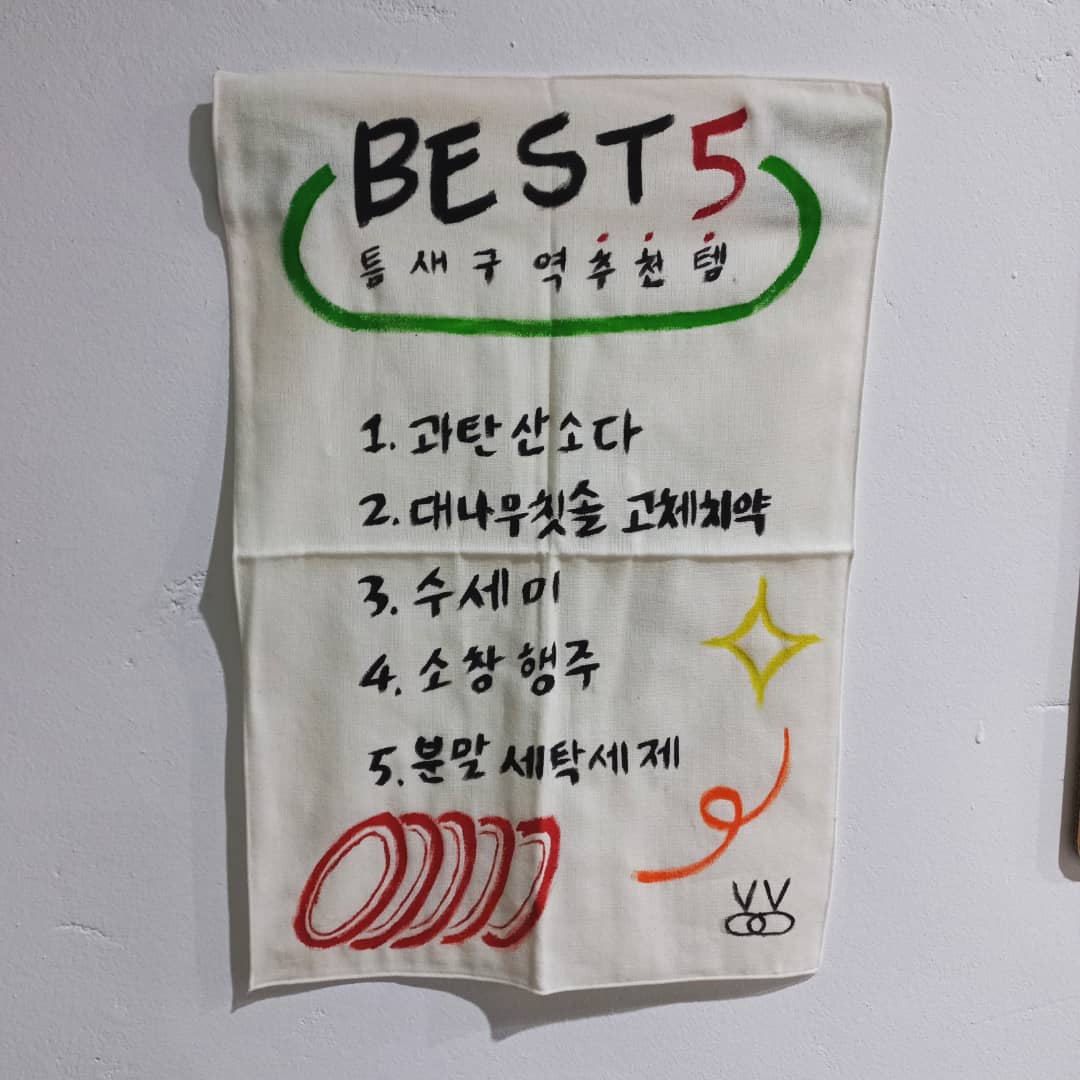 BEST 5
틈새구역추천템
1. 과탄산소다
2. 대나무칫솔 고체치약
3. 수세미
4. 소창행주
5. 분말 세탁세제